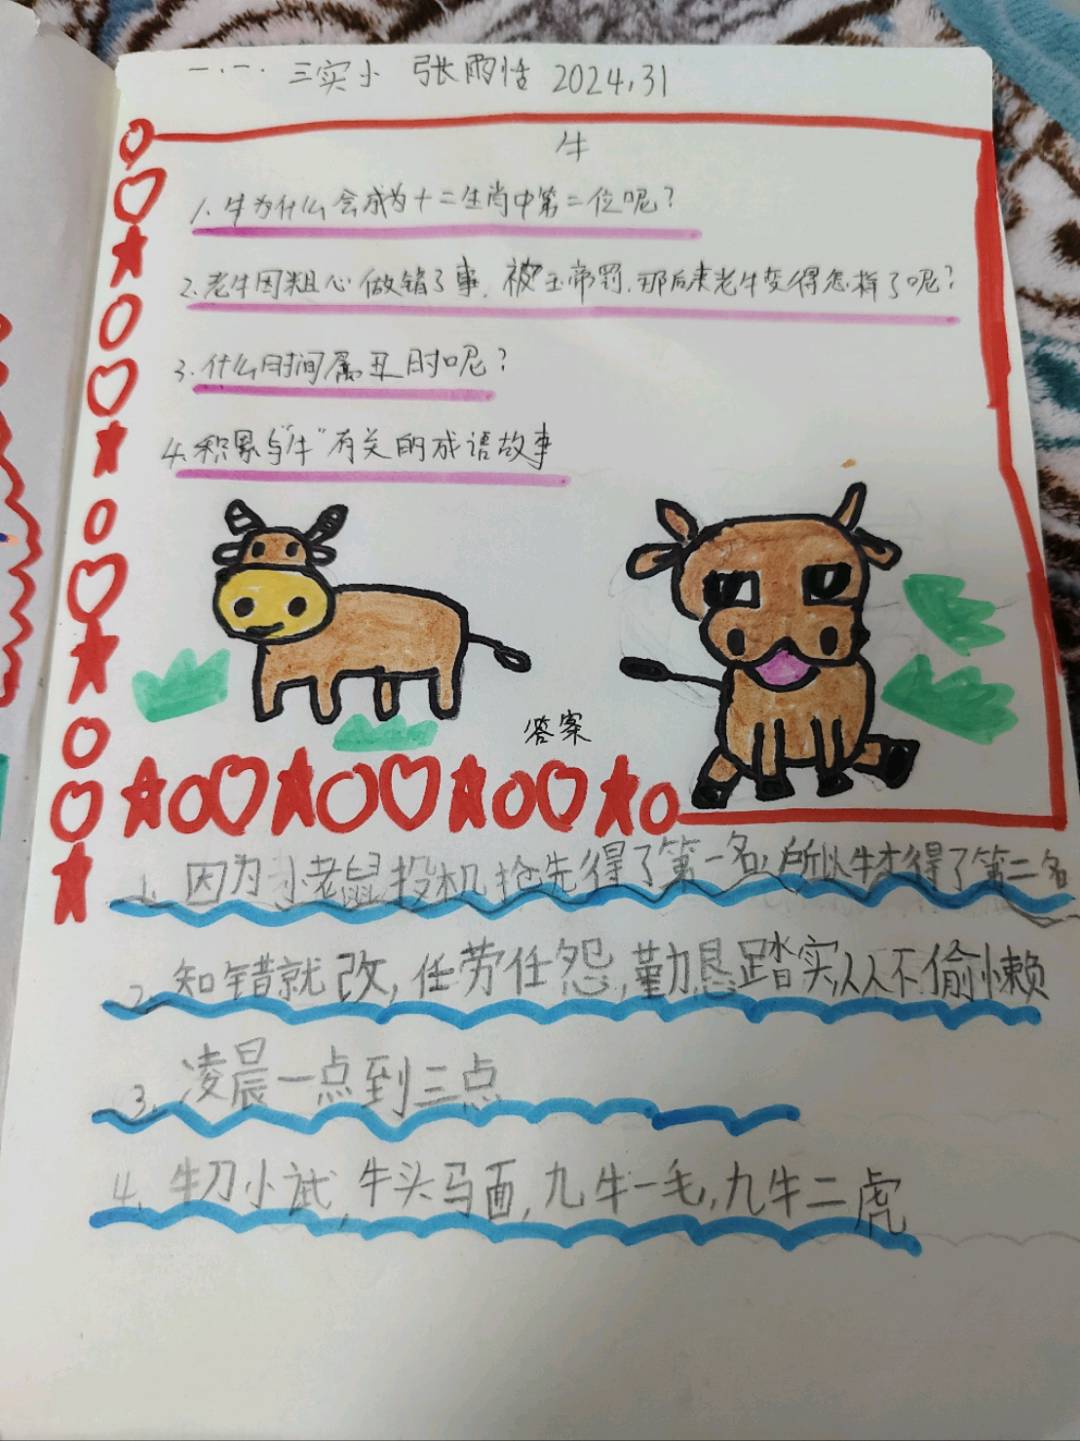 一.一. 三实小 张雨恬 2024.31
牛
1.牛为什么会成为十二生肖中第二位呢?
2.老牛因粗心做错了事,被玉帝罚,那后来老牛变得怎样了呢?
3.什么时间属丑时呢?
4.积累与“牛”有关的成语故事
答案
1.因为小老鼠投机抢先得了第一名,所以牛变得了第二名
2.知错就改,任劳任怨,勤恳踏实从不偷懒
3.凌晨一点到三点
4.牛刀小试,牛头马面,九牛一毛,九牛二虎